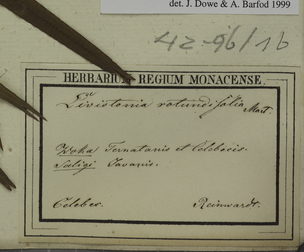 det. J. Dowe & A. Barfod 1999
42-96/16
HERBARIUM REGIUM MONACENSE.
Livistonia rotundifolia Mart.
Woka Ternatanis et Celebesis
Saligi Javanis.
Celebes. Reinwardt.